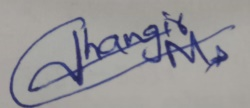 Jhangir M